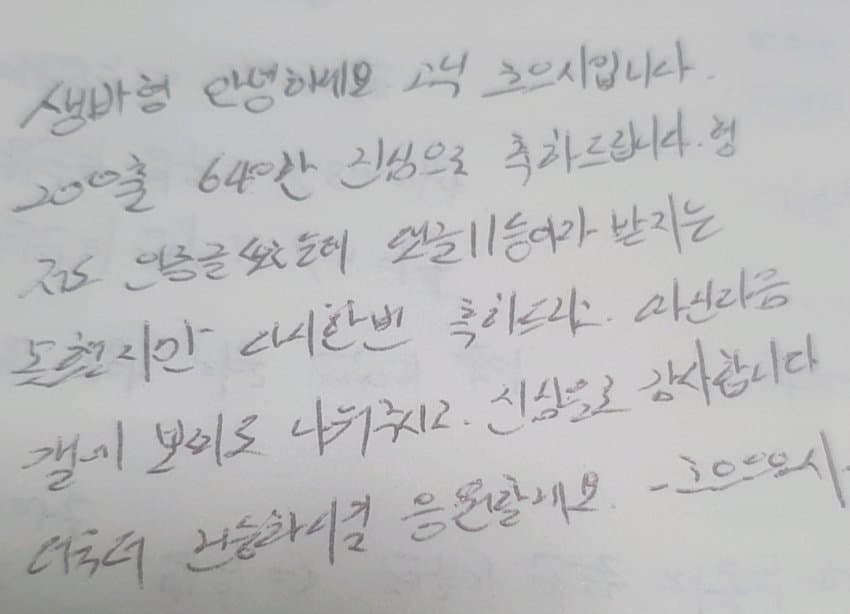 생바형 안녕하세요 고닉 흐으시입니다.
200출 640만 진심으로 축하드립니다. 형
저도 인증글 썼는데 댓글11등이라 받지는
못했지만 다시한번 축하드리고.
갤에 보미도 나눠주시고. 진심으로 감사합니다
더욱더 건승하시길 응원할게요. - 흐으으시.